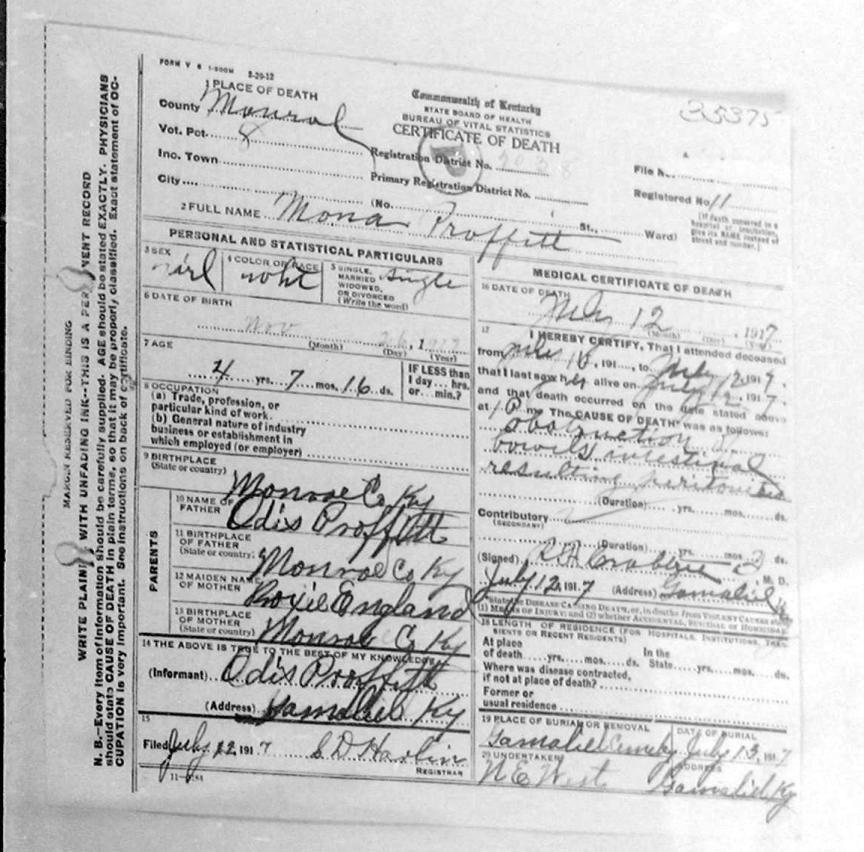 FORM V S 1-500M 3-20-12
1 PLACE OF DEATH
County Monroe
Vot. Pct. 8
Inc. Town
City
Commonwealth of Kentucky
STATE BOARD OF HEALTH
BUREAU OF VITAL STATISTICS
CERTIFICATE OF DEATH
35375
Registration District No. 2038
Primary Registration District No.
File No.
Registered No 11
(No. St., Ward)
(If death occurred in a hospital or institution, give its NAME instead of street and number.)
2 FULL NAME Mona Proffitt
PERSONAL AND STATISTICAL PARTICULARS
3 SEX girl
4 COLOR OR RACE whit
5 SINGLE, MARRIED WIDOWED, OR DIVORCED (Write the word) Single
6 DATE OF BIRTH
Nov 26, 191
(Month) (Day) (Year)
7 AGE
4 yrs. 7 mos. 16 ds.
IF LESS than
1 day... hrs.
or... min.?
8 OCCUPATION
(a) Trade, profession, or
particular kind of work
(b) General nature of industry
business or establishment in
which employed (or employer)
9 BIRTHPLACE
(State or country) Monroe Co Ky
PARENTS
10 NAME OF
FATHER Odis Proffitt
11 BIRTHPLACE
OF FATHER
(State or country) Monroe Co Ky
12 MAIDEN NAME
OF MOTHER Roxie England
13 BIRTHPLACE
OF MOTHER
(State or country) Monroe Co Ky
14 THE ABOVE IS TRUE TO THE BEST OF MY KNOWLEDGE
(Informant) Odis Proffitt
(Address) Gamaliel Ky
15
Filed July 22 1917
REGISTRAR
11-3184
MEDICAL CERTIFICATE OF DEATH
16 DATE OF DEATH
July 12, 1917
(Month) (Day) (Year)
17 I HEREBY CERTIFY, That I attended deceased
from July 10, 191, to July 12 1917,
that I last saw her alive on July 12, 1917,
and that death occurred on the date stated above
at 1 P m. The CAUSE OF DEATH was as follows:
obstruction of
bowils intestinal
resulting peritonitis
(Duration) yrs. mos. ds.
Contributory
(SECONDARY)
(Duration) yrs. mos. 3 ds.
(Signed) M. D.
July 12, 1917 (Address) Gamaliel Ky
*State the DISEASE CAUSING DEATH, or, in deaths from VIOLENT CAUSES state
(1) MEANS OF INJURY; and (2) whether ACCIDENTAL, SUICIDAL or HOMICIDAL
18 LENGTH OF RESIDENCE (FOR HOSPITALS, INSTITUTIONS, TRANSIENTS OR RECENT RESIDENTS)
At place
of death yrs. mos. ds.
In the
State yrs. mos. ds.
Where was disease contracted,
if not at place of death?
Former or
usual residence
19 PLACE OF BURIAL OR REMOVAL
DATE OF BURIAL
Gamaliel July 13, 1917
20 UNDERTAKER
ADDRESS
N E West
Gamaliel Ky
MARGIN RESERVED FOR BINDING
WRITE PLAINLY WITH UNFADING INK--THIS IS A PERMANENT RECORD
N. B.--Every item of information should be carefully supplied. AGE should be stated EXACTLY. PHYSICIANS
should state CAUSE OF DEATH in plain terms, so that it may be properly classified. Exact statement of OC-
CUPATION is very important. See instructions on back of certificate.